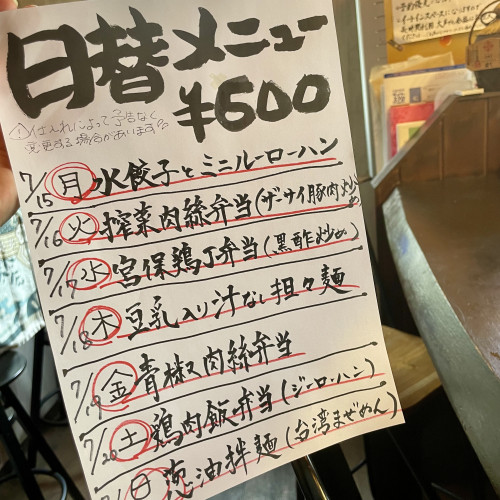 日替メニュー
¥600
①仕入れによって予告なく
変更する場合があります。
7/15 月 水餃子とミニルーローハン
7/16 火 搾菜肉絲弁当(ザーサイ豚肉炒め)
7/17 水 宮保鶏丁弁当(黒酢炒め)
7/18 木 豆乳入り汁なし担々麺
7/19 金 青椒肉絲弁当
7/20 土 鶏肉飯弁当(ジーローハン)
日 葱油拌麺(台湾まぜめん)